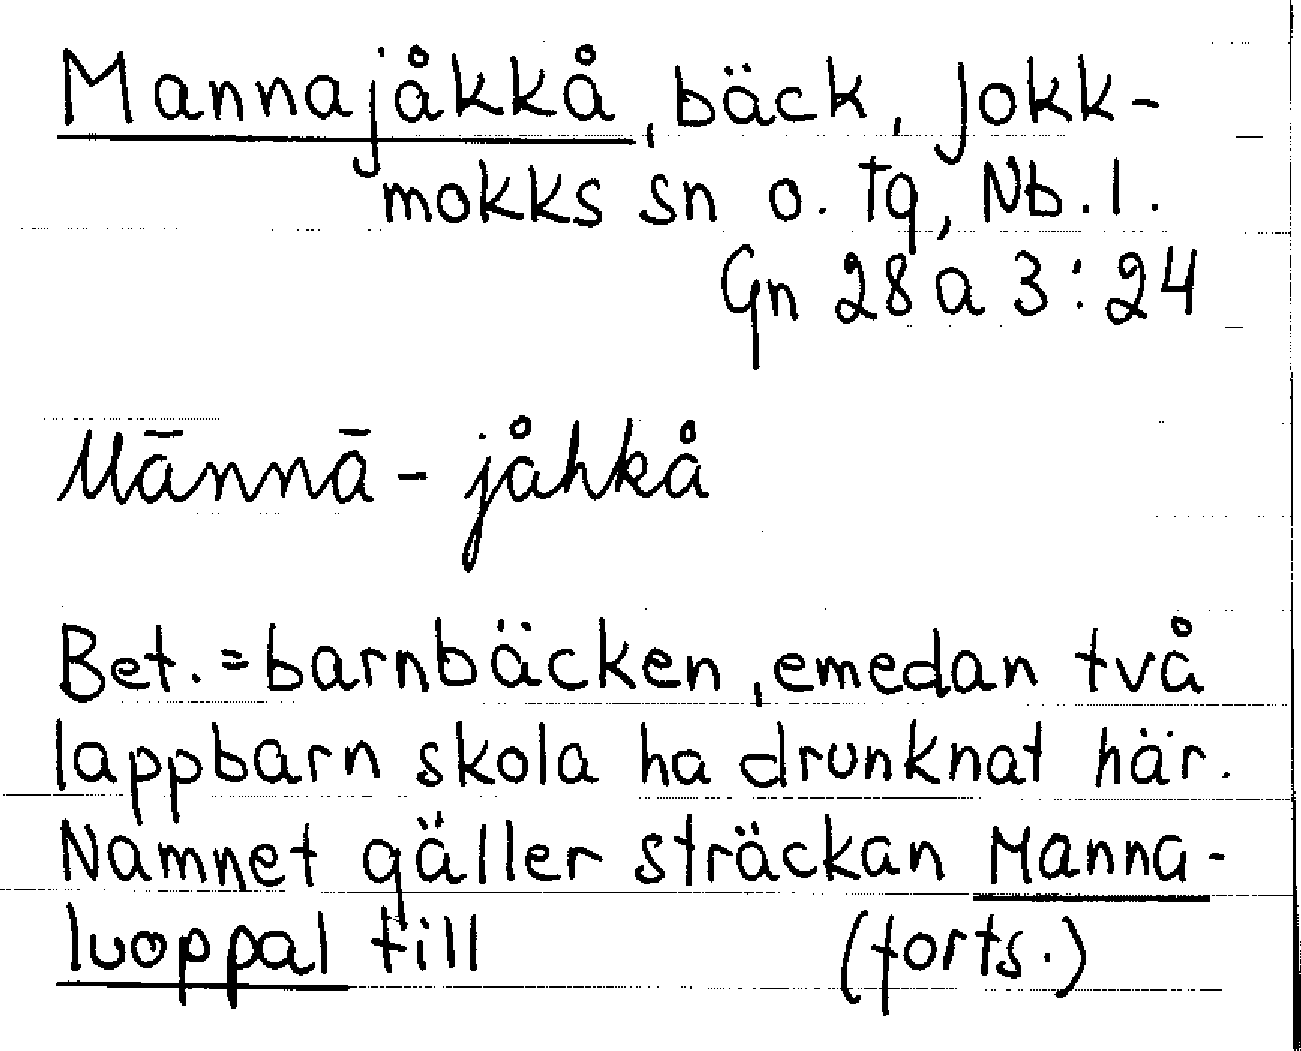 Mannajåkkå, bäck, Jokk-
mokks sn o. tg, Nb. l.
Gn 28 a 3:24
Mānnā-jåhkå
Bet. = barnbäcken, emedan två
lappbarn skola ha drunknat här.
Namnet gäller sträckan Manna-
luoppal till (forts.)